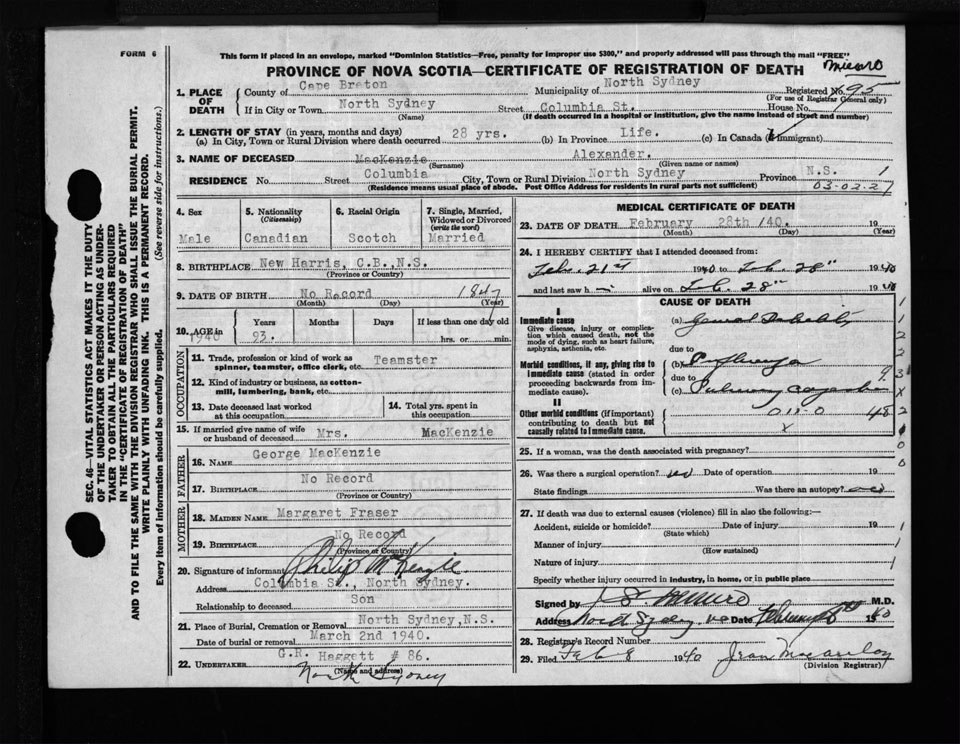 FORM 6
This form if placed in an envelope, marked "Dominion Statistics—Free, penalty for improper use $300," and properly addressed will pass through the mail "FREE"
PROVINCE OF NOVA SCOTIA—CERTIFICATE OF REGISTRATION OF DEATH
1. PLACE OF DEATH
County of Cape Breton Municipality of North Sydney Registered No. 95
(For use of Registrar General only)
If in City or Town North Sydney Street Columbia St. House No.
(Name) (If death occurred in a hospital or institution, give the name instead of street and number)
2. LENGTH OF STAY (in years, months and days)
(a) In City, Town or Rural Division where death occurred 28 yrs. (b) In Province Life. (c) In Canada (if Immigrant)
3. NAME OF DECEASED MacKenzie Alexander.
(Surname) (Given name or names)
RESIDENCE No. Street Columbia City, Town or Rural Division North Sydney Province N.S. 1
(Residence means usual place of abode. Post Office Address for residents in rural parts not sufficient) 03-02-27
4. Sex Male
5. Nationality (Citizenship) Canadian
6. Racial Origin Scotch
7. Single, Married, Widowed or Divorced (write the word) Married
8. BIRTHPLACE New Harris, C.B., N.S.
(Province or Country)
9. DATE OF BIRTH No Record 1847
(Month) (Day) (Year)
10. AGE in 1940 Years 93. Months Days If less than one day old
hrs. or min.
OCCUPATION
11. Trade, profession or kind of work as spinner, teamster, office clerk, etc. Teamster
12. Kind of industry or business, as cotton-mill, lumbering, bank, etc.
13. Date deceased last worked at this occupation
14. Total yrs. spent in this occupation
15. If married give name of wife or husband of deceased Mrs. MacKenzie
FATHER
16. NAME George MacKenzie
17. BIRTHPLACE No Record
(Province or Country)
MOTHER
18. MAIDEN NAME Margaret Fraser
19. BIRTHPLACE No Record
(Province or Country)
20. Signature of informant Philip
Address Columbia St., North Sydney.
Relationship to deceased Son
21. Place of Burial, Cremation or Removal North Sydney, N.S.
Date of burial or removal March 2nd 1940.
22. UNDERTAKER G.R. Haggett # 86.
(Name and address)
North Sydney
MEDICAL CERTIFICATE OF DEATH
23. DATE OF DEATH February 28th /40. 19
(Month) (Day) (Year)
24. I HEREBY CERTIFY that I attended deceased from:
Feb. 21st 1940 to Feb. 28" 1940
and last saw h alive on Feb. 28" 1940
CAUSE OF DEATH
I
Immediate cause
Give disease, injury or complication which caused death, not the mode of dying, such as heart failure, asphyxia, asthenia, etc.
(a) General Debility
due to
Morbid conditions, if any, giving rise to immediate cause (stated in order proceeding backwards from immediate cause).
(b) Influenza
due to
(c)
II
Other morbid conditions (if important) contributing to death but not causally related to immediate cause.
25. If a woman, was the death associated with pregnancy?
26. Was there a surgical operation? no Date of operation 19
State findings Was there an autopsy? no
27. If death was due to external causes (violence) fill in also the following:
Accident, suicide or homicide? Date of injury 19
(State which)
Manner of injury
(How sustained)
Nature of injury
Specify whether injury occurred in industry, in home, or in public place
Signed by M.D.
Address North Sydney Date February 19 40
28. Registrar's Record Number
29. Filed 1940
(Division Registrar)
SEC. 46—VITAL STATISTICS ACT MAKES IT THE DUTY
OF THE UNDERTAKER OR PERSON ACTING AS UNDER-
TAKER TO OBTAIN ALL THE PARTICULARS REQUIRED
IN THE "CERTIFICATE OF REGISTRATION OF DEATH"
AND TO FILE THE SAME WITH THE DIVISION REGISTRAR WHO SHALL ISSUE THE BURIAL PERMIT.
WRITE PLAINLY WITH UNFADING INK. THIS IS A PERMANENT RECORD.
Every item of information should be carefully supplied. (See reverse side for instructions.)